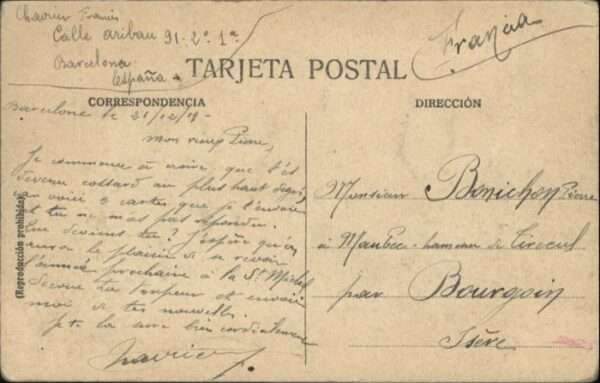 Francis
Calle Aribau 91-2º 1ª
Barcelona
España
Francia
TARJETA POSTAL
CORRESPONDENCIA
DIRECCIÓN
(Reproducción prohibida)
Barcelone le 21/12/19-
Mon vieux Pierre,
Je commence à croire que t'es
devenu cossard au plus haut degré,
voici 2 cartes que je t'envoie
et tu ne m'as pas répondu.
Que deviens tu? J'espère qu'on
aura le plaisir de se revoir
l'année prochaine à la St Michel
Secoue ta torpeur et envoie
moi de tes nouvelles.
Je te la serre bien cordialement
Monsieur Bonichon Pierre
à Maubec - hameau de
par Bourgoin
Isère